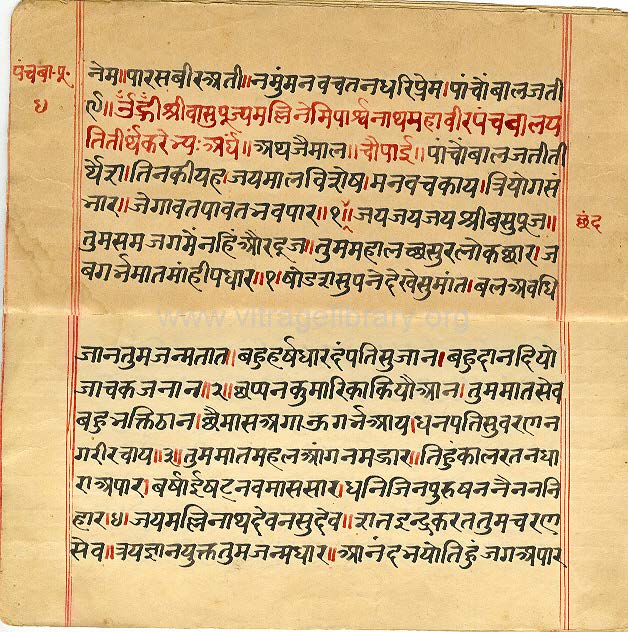 पंचबा.पू.
४
नेम॥पारसबीरअती॥नमुंमनवचतनधरिप्रेम।पांचोंबालजती
र्थ॥ॐह्रींश्रीवासुपूज्यमल्लिनेमिपार्श्वनाथमहावीरपंचबालय
तितीर्थंकरेभ्यःअर्घं॥अथजैमाल॥चौपाई॥पांचोंबालजतीती
र्थेश।तिनकीयह।जयमालविशेष।मनवचकाय।त्रियोगसं
भार।जेगावतपावतभवपार॥१॥जयजयजयश्रीबसुपूज॥
छंद
तुमसमजगमेंनहिंऔरदूज॥तुममहालछसुरलोकछार।ज
बगर्भमातमांहीपधार॥१।षोडशसुपनेदेखेसुमात।बलअवधि
www.vitragelibrary.org
जानतुमजन्मतात॥बहुहर्षधारदंपतिसुजान।बहुदानदियो
जाचकजनान॥२॥छप्पनकुमारिकाकियौआन।तुममातसेव
बहुभक्तिठान।छैमासअगाऊगर्भआय।धनपतिसुवरणन
गरीरचाय॥३॥तुममातमहलआंगनमझार॥तिहुंकालरतनधा
राअपार।बर्षाईषटनवमाससार।धनिजिनपुरुषननैनननि
हार।४।जयमल्लिनाथदेवनसुदेव॥शतइन्द्रकरततुमचरण
सेव॥त्रयज्ञानयुक्ततुमजन्मधार॥आनंदभयोतिहुंजगअपार